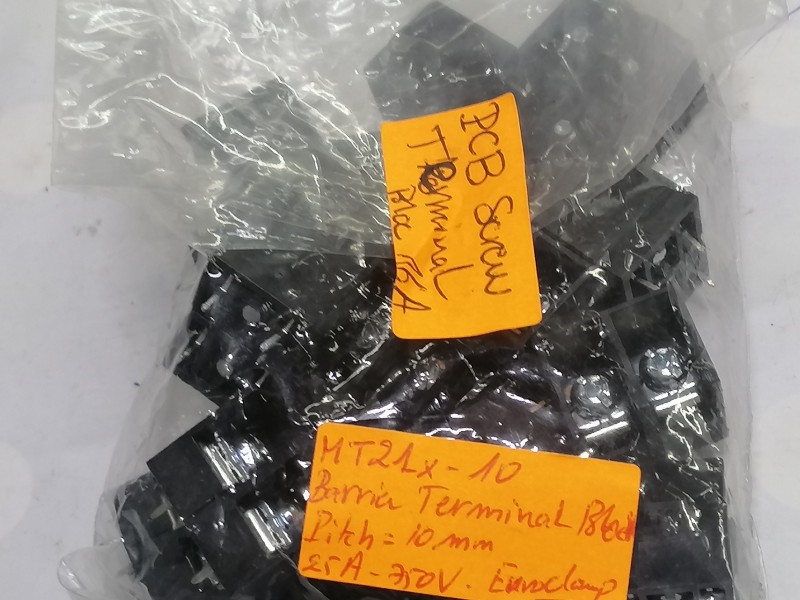 PCB Screw
TERminal
Bloc
MT21x-10
Barrier Terminal Block
Pitch = 10 mm
25A - 750V. Euroclamp